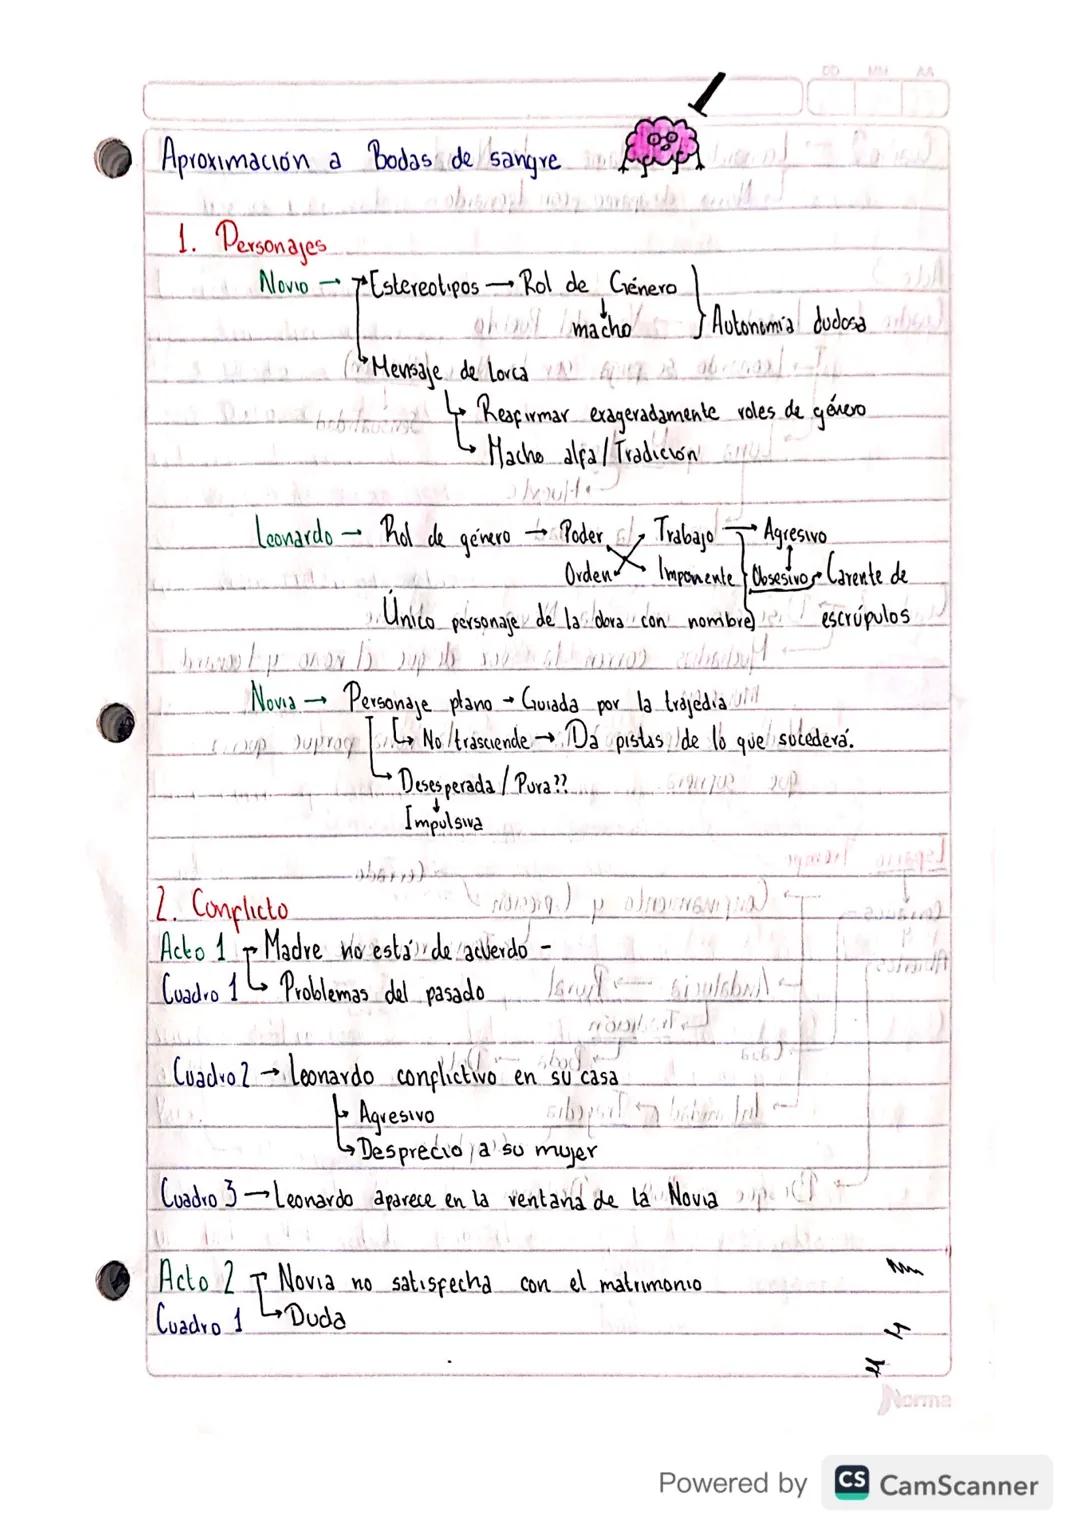 DD MM AA
Aproximación a Bodas de sangre
1. Personajes
Novio → Estereotipos → Rol de Género
macho } Autonomía dudosa
→ Mensaje de Lorca
→ Reafirmar exageradamente roles de género
→ Macho alfa / Tradición
Leonardo → Rol de género → Poder Trabajo → Agresivo
Orden Imponente Obsesivo → Carente de
Único personaje de la obra con nombre escrúpulos
Novia → Personaje plano → Guiada por la trajedia
→ No trasciende → Da pistas de lo que sucederá.
→ Desesperada / Pura??
Impulsiva
2. Conflicto
Acto 1 Madre no está de acuerdo -
Cuadro 1 → Problemas del pasado
Cuadro 2 → Leonardo conflictivo en su casa
→ Agresivo
→ Desprecio a su mujer
Cuadro 3 → Leonardo aparece en la ventana de la Novia
Acto 2 Novia no satisfecha con el matrimonio
Cuadro 1 → Duda
Norma
Powered by CS CamScanner